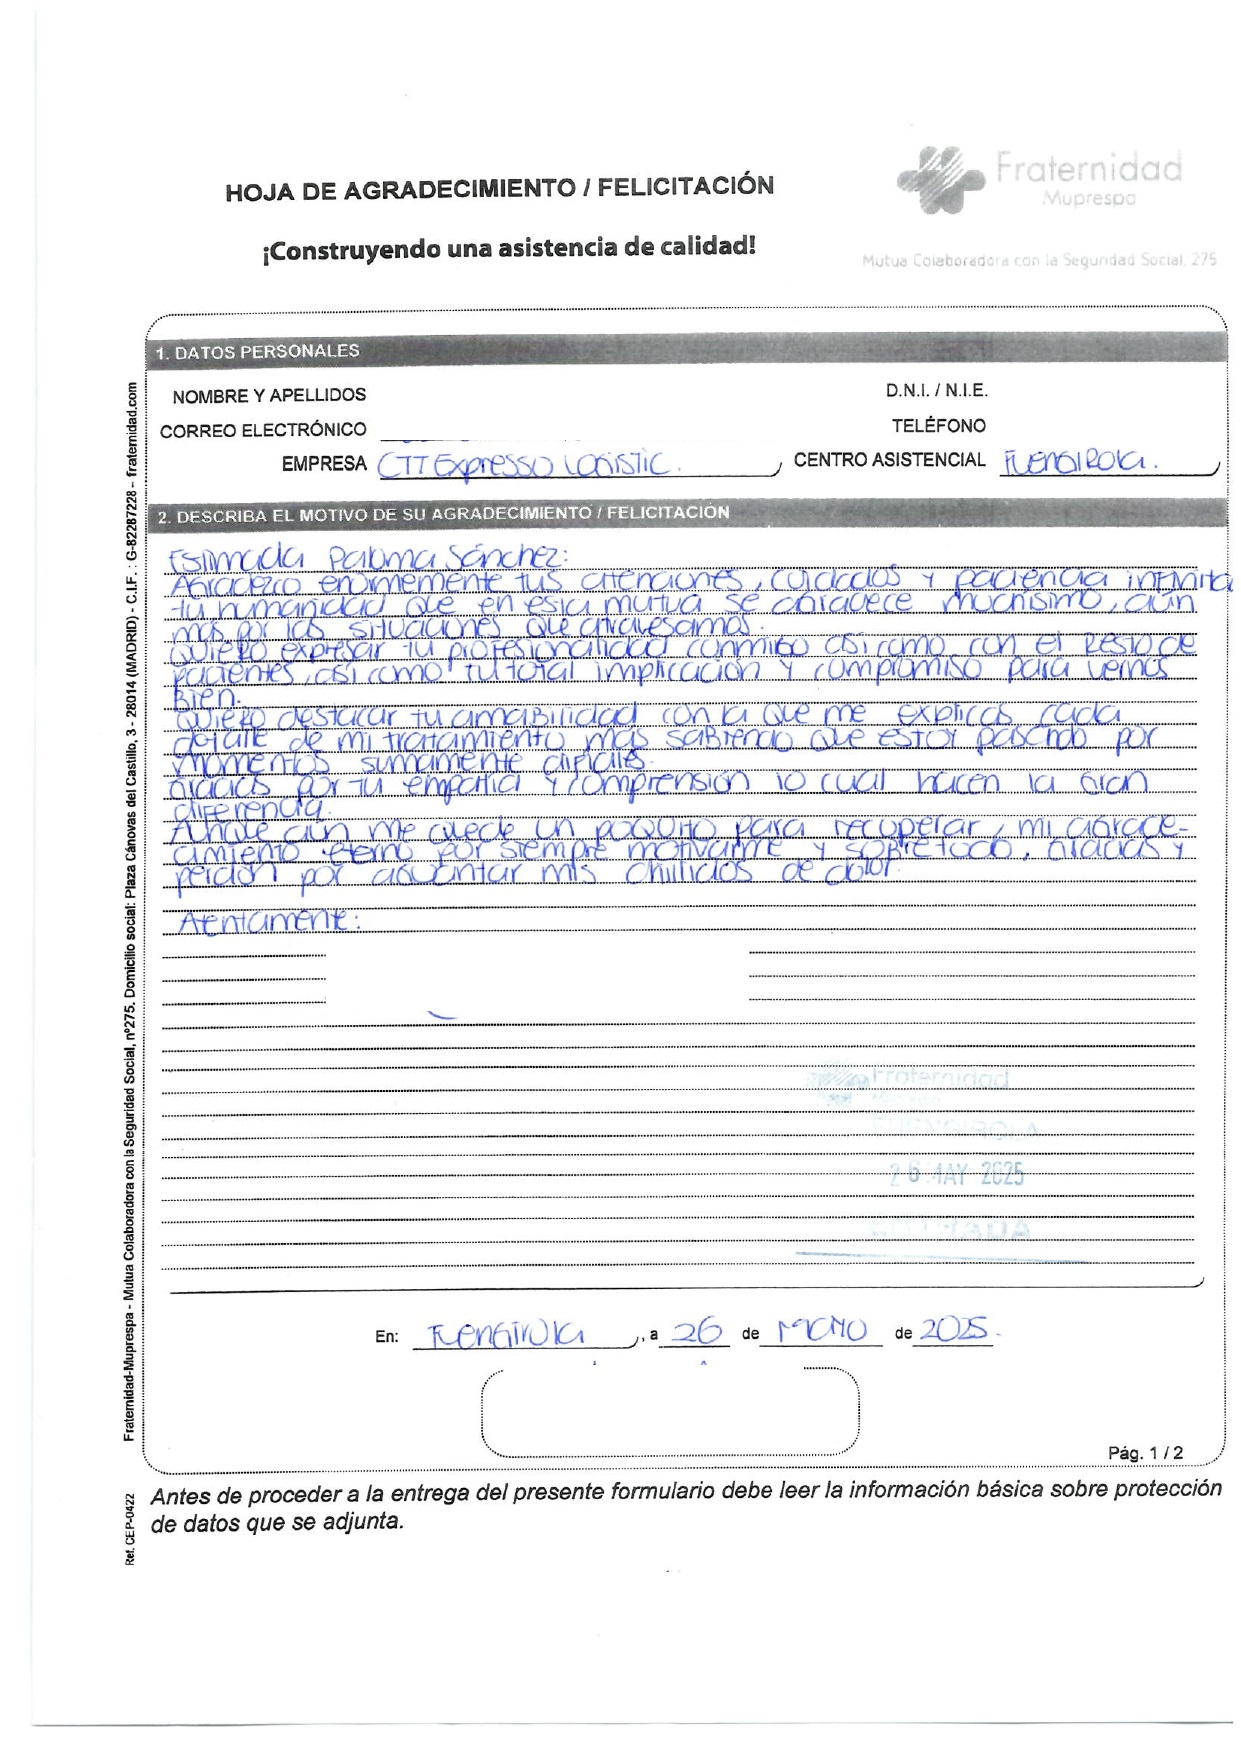 Fraternidad
Muprespa
HOJA DE AGRADECIMIENTO / FELICITACIÓN
¡Construyendo una asistencia de calidad!
Mutua Colaboradora con la Seguridad Social, 275
1. DATOS PERSONALES
NOMBRE Y APELLIDOS D.N.I. / N.I.E.
CORREO ELECTRÓNICO TELÉFONO
EMPRESA CTT Expresso Logistic. CENTRO ASISTENCIAL Fuengirola.
2. DESCRIBA EL MOTIVO DE SU AGRADECIMIENTO / FELICITACIÓN
Estimada Paloma Sánchez:
Agradezco enormemente tus atenciones, cuidados y paciencia infinita
tu humanidad que en esta mutua se agradece muchísimo, aún
más por las situaciones que atravesamos.
Quiero expresar tu profesionalidad conmigo así como con el resto de
pacientes, así como tu total implicación y compromiso para vernos
Bien.
Quiero destacar tu amabilidad con la que me explicas cada
detalle de mi tratamiento más sabiendo que estoy pasando por
momentos sumamente difíciles.
Gracias por tu empatía y comprensión lo cual hacen la gran
diferencia.
Aunque aún me quede un poquito para recuperar, mi agrade-
cimiento eterno por siempre motivarme y sobretodo, gracias y
perdón por aguantar mis chillidos de dolor.
Atentamente:
Fraternidad
FUENGIROLA
26 MAY 2025
ENTRADA
En: Fuengirola, a 26 de Mayo de 2025.
Pág. 1 / 2
Antes de proceder a la entrega del presente formulario debe leer la información básica sobre protección
de datos que se adjunta.
Fraternidad-Muprespa - Mutua Colaboradora con la Seguridad Social, nº275. Domicilio social: Plaza Cánovas del Castillo, 3 - 28014 (MADRID) - C.I.F. : G-82287228 - fraternidad.com
Ref. CEP-0422